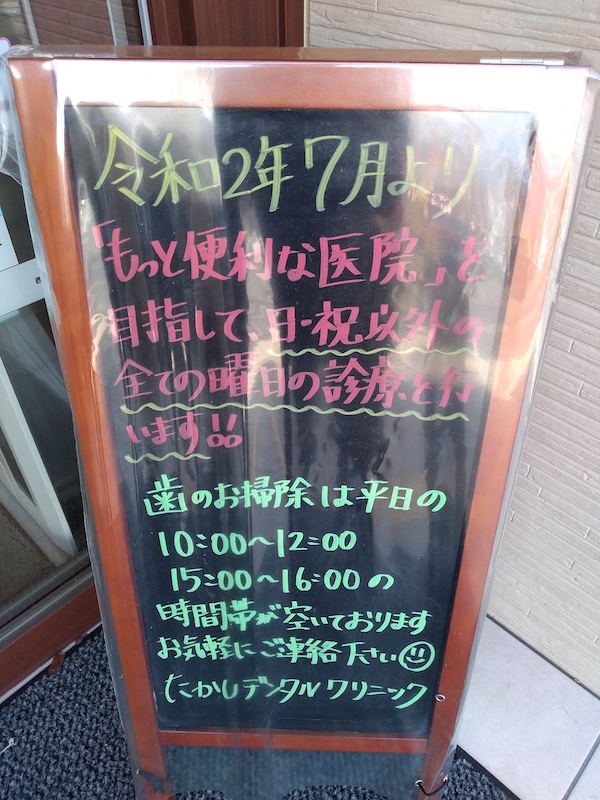 令和2年7月より
「もっと便利な医院」を
目指して、日・祝以外の
全ての曜日の診療を行
います!!
歯のお掃除は平日の
10:00〜12:00
15:00〜16:00の
時間帯が空いております
お気軽にご連絡下さい
たかしデンタルクリニック